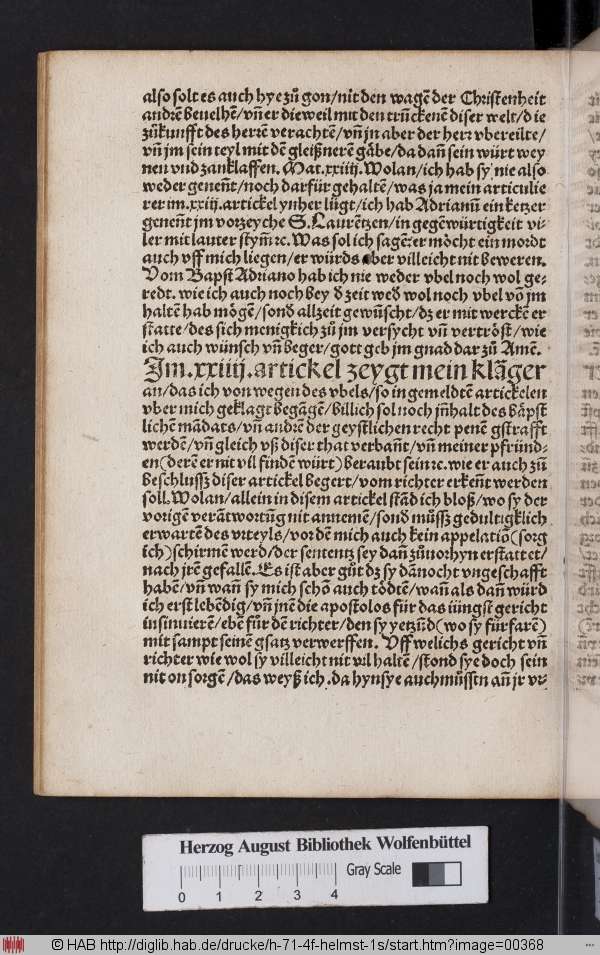 also solt es auch hye zů gon/nit den wagē der Christenheit
andrē beuelhē/vn̄ er die weil mit den trūckenē diser welt/die
zůkunfft des herrē verachtē/vn̄ jn aber der herr vbereilte/
vn̄ jm sein teyl mit dē gleißnerē gäbe/da dañ sein würt wey
nen vnd zanklaffen. Mat.xxiiij. Wolan/ich hab sy nie also
weder geneñt/noch darfür gehaltē/was ja mein articulie
rer im.xxij.artickel ynher lügt/ich hab Adrianū ein ketzer
geneñt jm vorzeyche S.Laurētzen/in gegēwürtigkeit vi-
ler mit lauter stym̄ ꝛc. Was sol ich sagē: er möcht ein mordt
auch vff mich liegen/er würds aber villeicht nit beweren.
Vom Bapst Adriano hab ich nie weder vbel noch wol ge-
redt. wie ich auch noch bey d zeit wed wol noch vbel vō jm
haltē hab mögē/sond allzeit gewūscht/dz er mit werckē er
statte/des sich menigkich zů jm versycht vn̄ vertröst/wie
ich auch wünsch vn̄ beger/gott geb jm gnad dar zů Amē.
Im.xxiiij.artickel zeygt mein kläger
an/das ich von wegen des vbels/so in gemeldtē artickelen
vber mich geklagt begägē/billich sol noch jn̄halt des bäpst
lichē mādats/vn̄ andrē der geystlichen recht penē gstrafft
werdē/vn̄ gleich vß diser that verbañt/vn̄ meiner pfründ-
en(derē er nit vil findē würt)beraubt sein ꝛc. wie er auch zů
beschlussz diser artickel begert/vom richter erkeñt werden
soll. Wolan/allein in disem artickel stād ich bloß/wo sy der
vorigē verātwortūg nit annemē/sond můssz gedultigklich
erwartē des vrteyls/vor dē mich auch kein appelatiō(sorg
ich)schirmē werd/der sententz sey dañ zůuorhyn erstattet/
nach jrē gefallē. Es ist aber gůt dz sy dānocht vngeschafft
habē/vn̄ wañ sy mich schō auch tödtē/wañ als dañ würd
ich erst lebēdig/vn̄ jnē die apostolos für das iüngst gericht
insinuierē/ebē für dē richter/den sy yetzūd(wo sy fürfarē)
mit sampt seinē gsatz verwerffen. Vff welichs gericht vn̄
richter wie wol sy villeicht nit vil haltē/stond sye doch sein
nit on sorgē/das weyß ich. da hyn sye auch müsstn añ jr vr-
Herzog August Bibliothek Wolfenbüttel
Gray Scale
0 1 2 3 4
© HAB http://diglib.hab.de/drucke/h-71-4f-helmst-1s/start.htm?image=00368